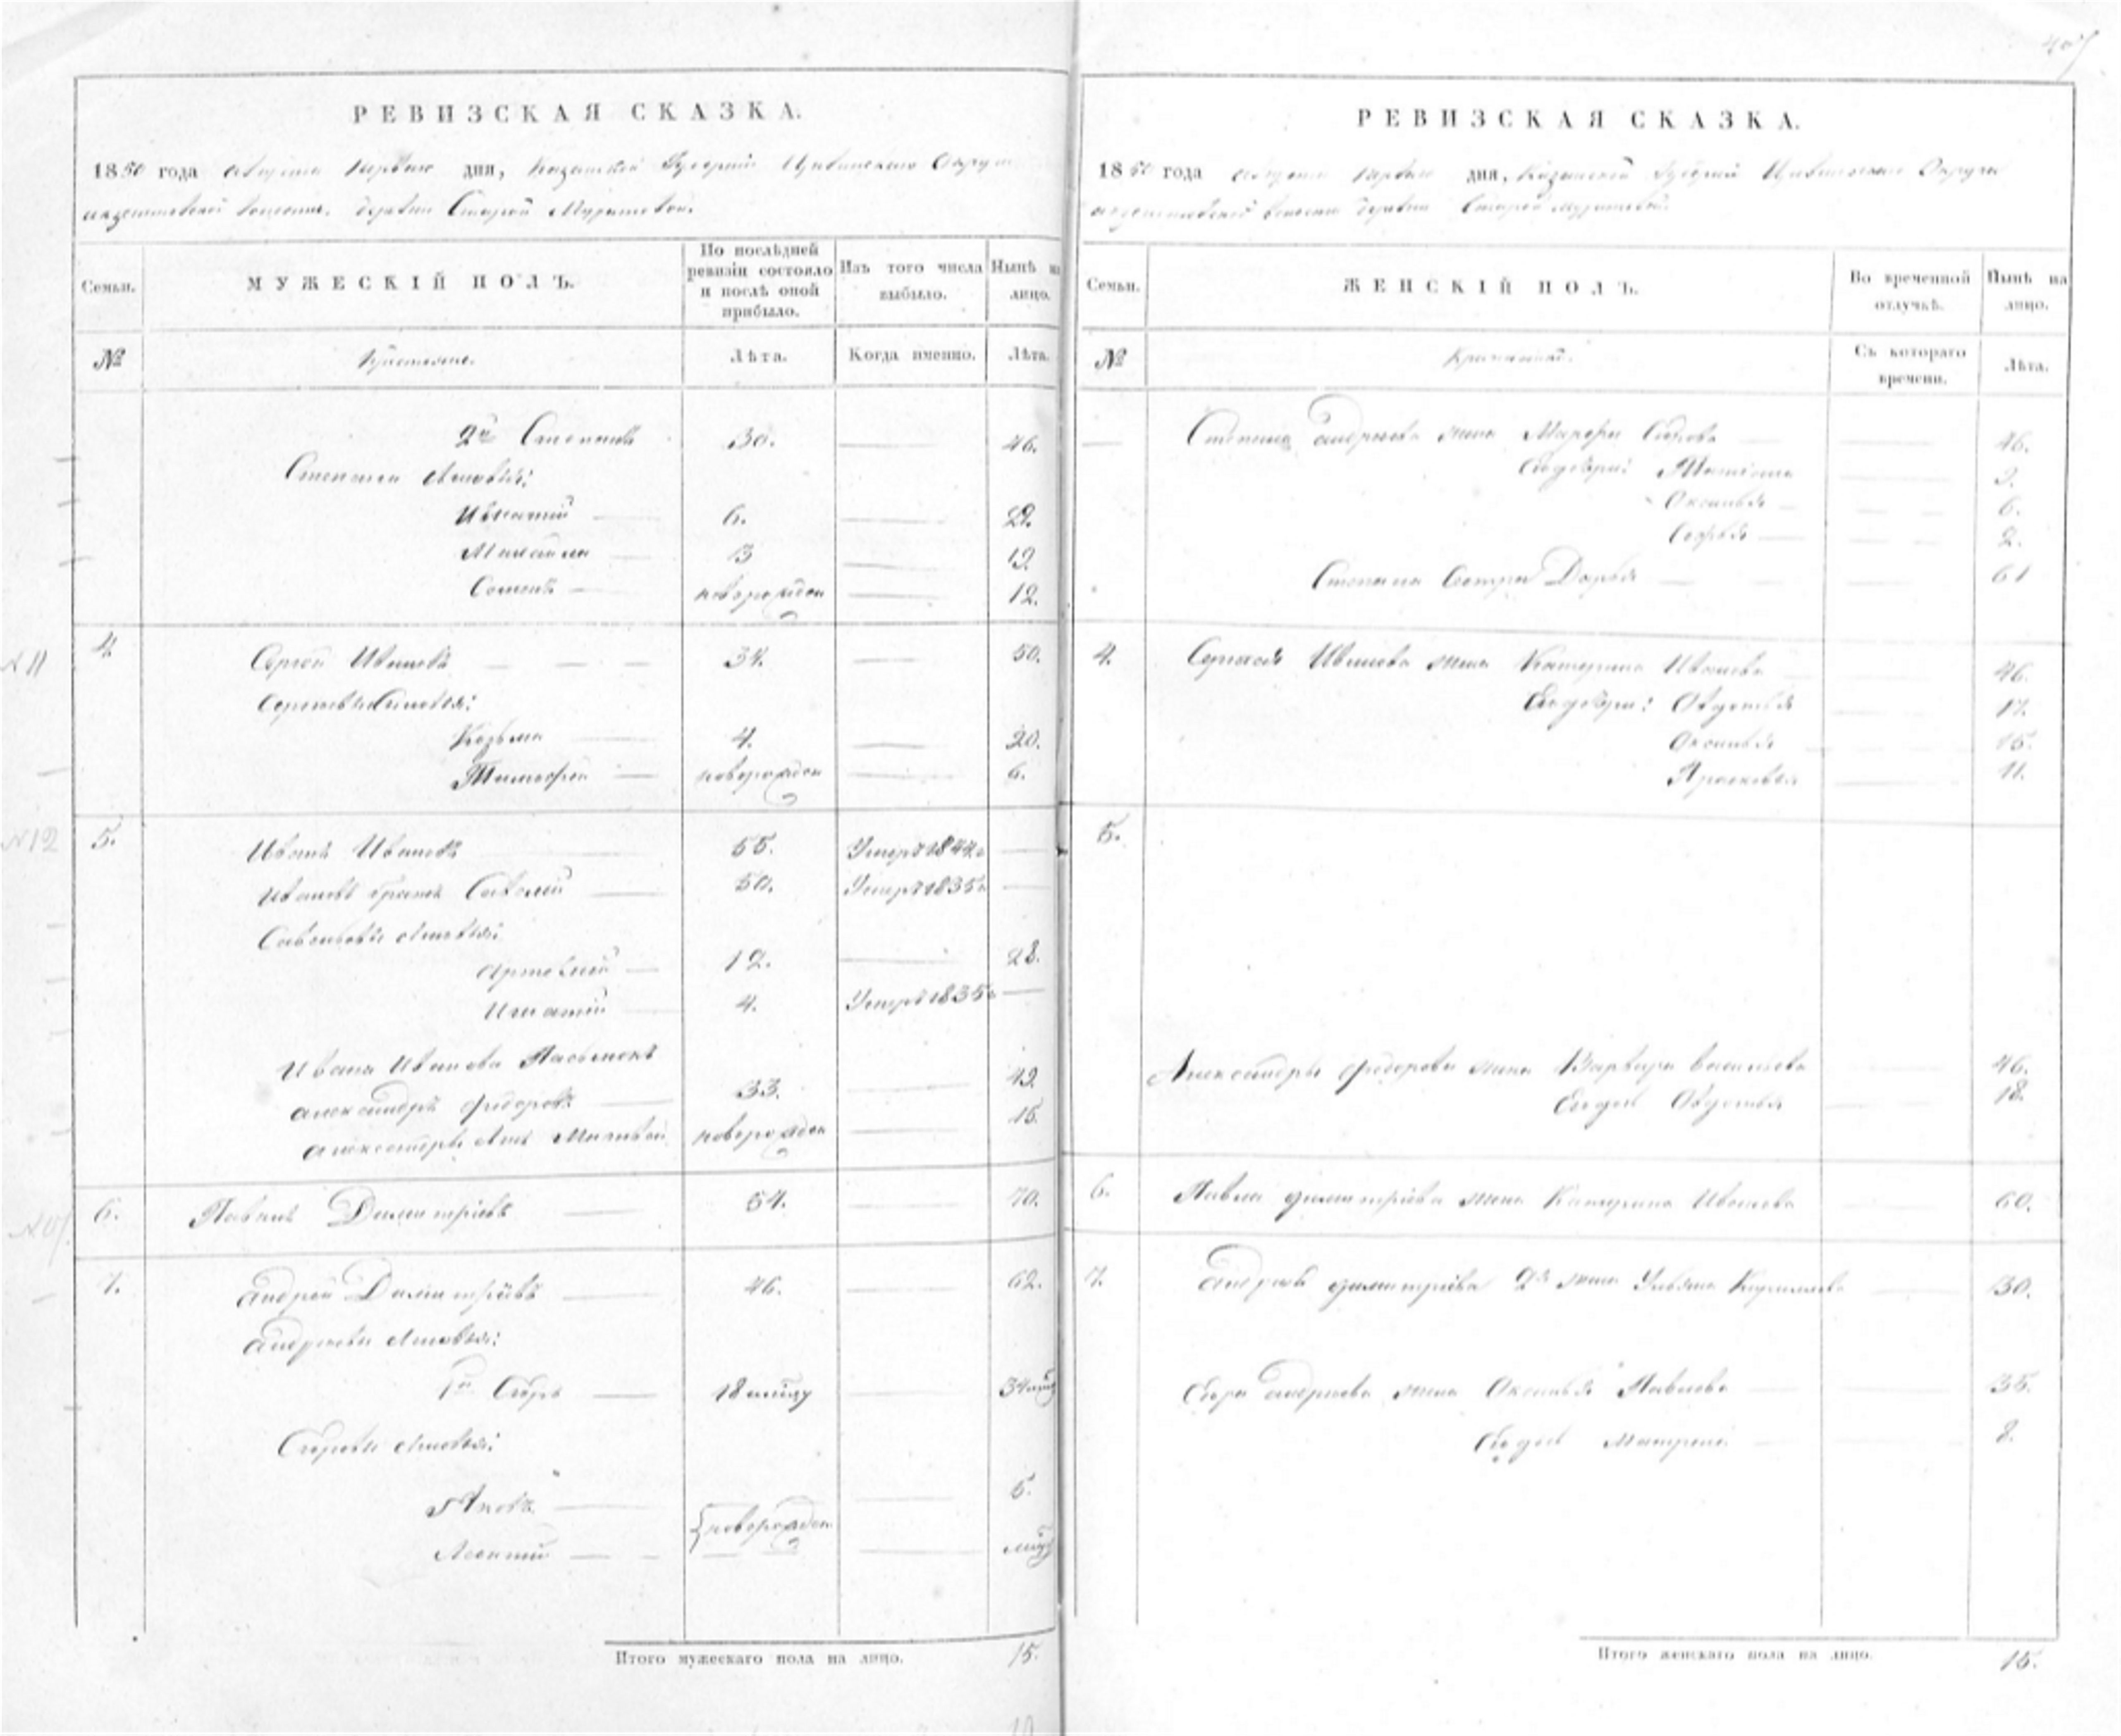 РЕВИЗСКАЯ СКАЗКА.
1850 года Августа первого дня, Казанской Губернии Цивильского Округа
волости, деревни Старой Муратовой.
Семьи.
МУЖЕСКІЙ ПОЛЪ.
По послѣдней ревизіи состояло и послѣ оной прибыло.
Изъ того числа выбыло.
Нынѣ на лицо.
№
Крестьяне.
Лѣта.
Когда именно.
Лѣта.
2й Степанъ 30. 46.
Степана сыновья:
Игнатий 6. 22.
Михайла 3 19.
Семенъ новорожден 12.
4. Сергей Ивановъ 34. 50.
Сергеевы сыновья:
Козьма 4. 20.
Тимофей новорожден 6.
5. Иванъ Ивановъ 55. Умеръ 1844г
Ивановъ братъ Савелий 50. Умеръ 1835г
Савельевы сыновья:
Артемий 12. 28.
Игнатий 4. Умеръ 1835г
Ивана Иванова Пасынокъ
Александръ Федоровъ 33. 49.
Александры сынъ Матвей новорожден 15.
6. Павелъ Димитріевъ 54. 70.
7. Андрей Димитріевъ 46. 62.
Андреевы сыновья:
1й Егоръ 18 34
Егоровы сыновья:
Яковъ 5.
новорожден
Леонтий
Итого мужескаго пола на лицо. 15.
РЕВИЗСКАЯ СКАЗКА.
1850 года Августа первого дня, Казанской Губерніи Цивильского Округа
волости деревни Старой Муратовой.
Семьи.
ЖЕНСКІЙ ПОЛЪ.
Во временной отлучкѣ.
Нынѣ на лицо.
№
Крестьянки.
Съ котораго времени.
Лѣта.
Степана Андреева жена Марфа 46.
Его дочери: Татьяна 9.
Оксинья 6.
Софья 2.
Степана Сестра Дарья 61
4. Сергея Иванова жена Катерина Иванова 46.
Его дочери: Авдотья 17.
Оксинья 15.
Прасковья 11.
5.
Александры Федорова жена Варвара Васильева 46.
Его дочь Авдотья 18.
6. Павла Димитріева жена Катерина Иванова 60.
7. Андрея Димитріева 2я жена Ульяна Кириллова 30.
Егора Андреева жена Оксинья Павлова 35.
Его дочь Матрена 8.
Итого женскаго пола на лицо. 15.